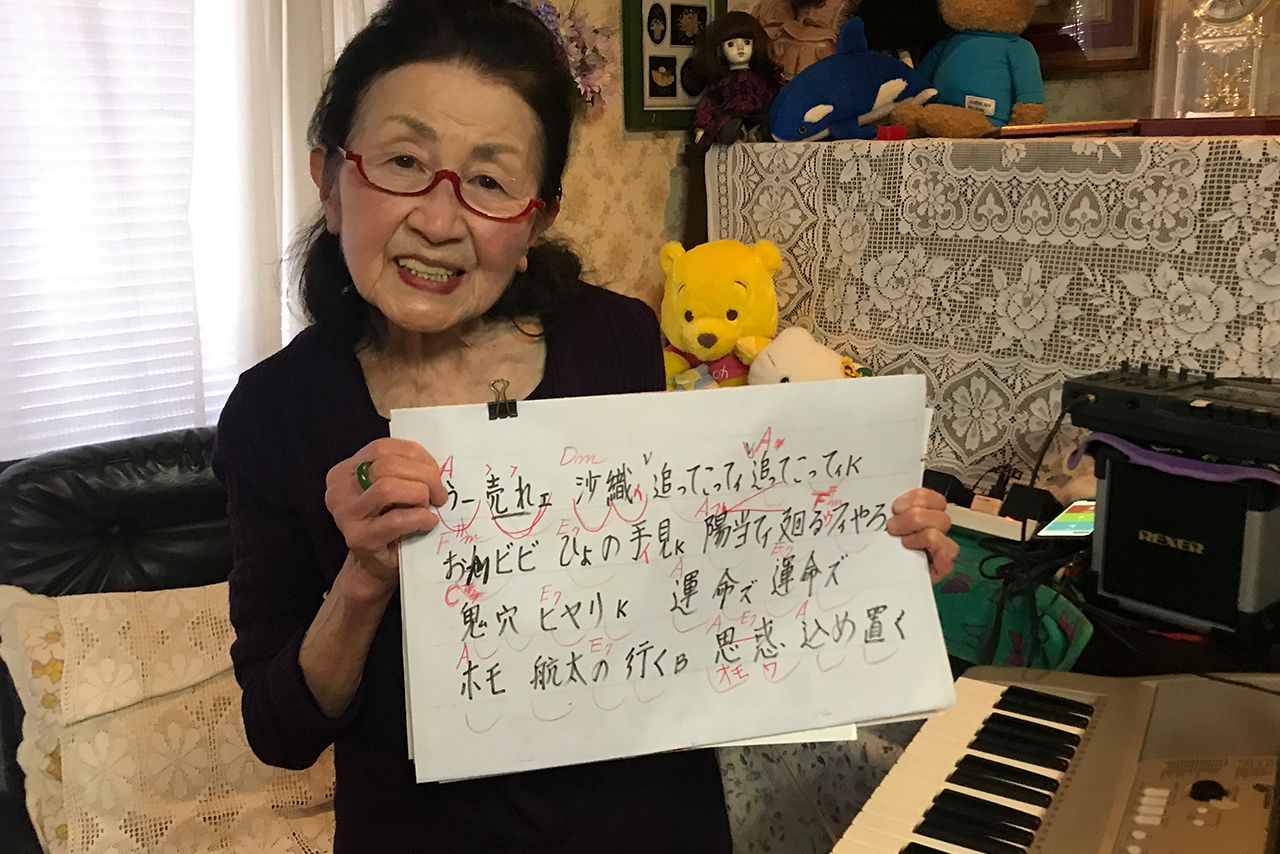 A Dm A
うー売れェ 沙織 追ってこってィ 追ってこってィK
F#m E7 A7 F#m
おれビビ ひょの手見K 陽当てィ 廻るゥフィやろ
C# E7 A E7
鬼穴 ヒヤリK 運命ズ 運命ズ
A E7 A E7 A
ホモ 航太の 行くB 思惑 込め置く
オモ ワ
REXER